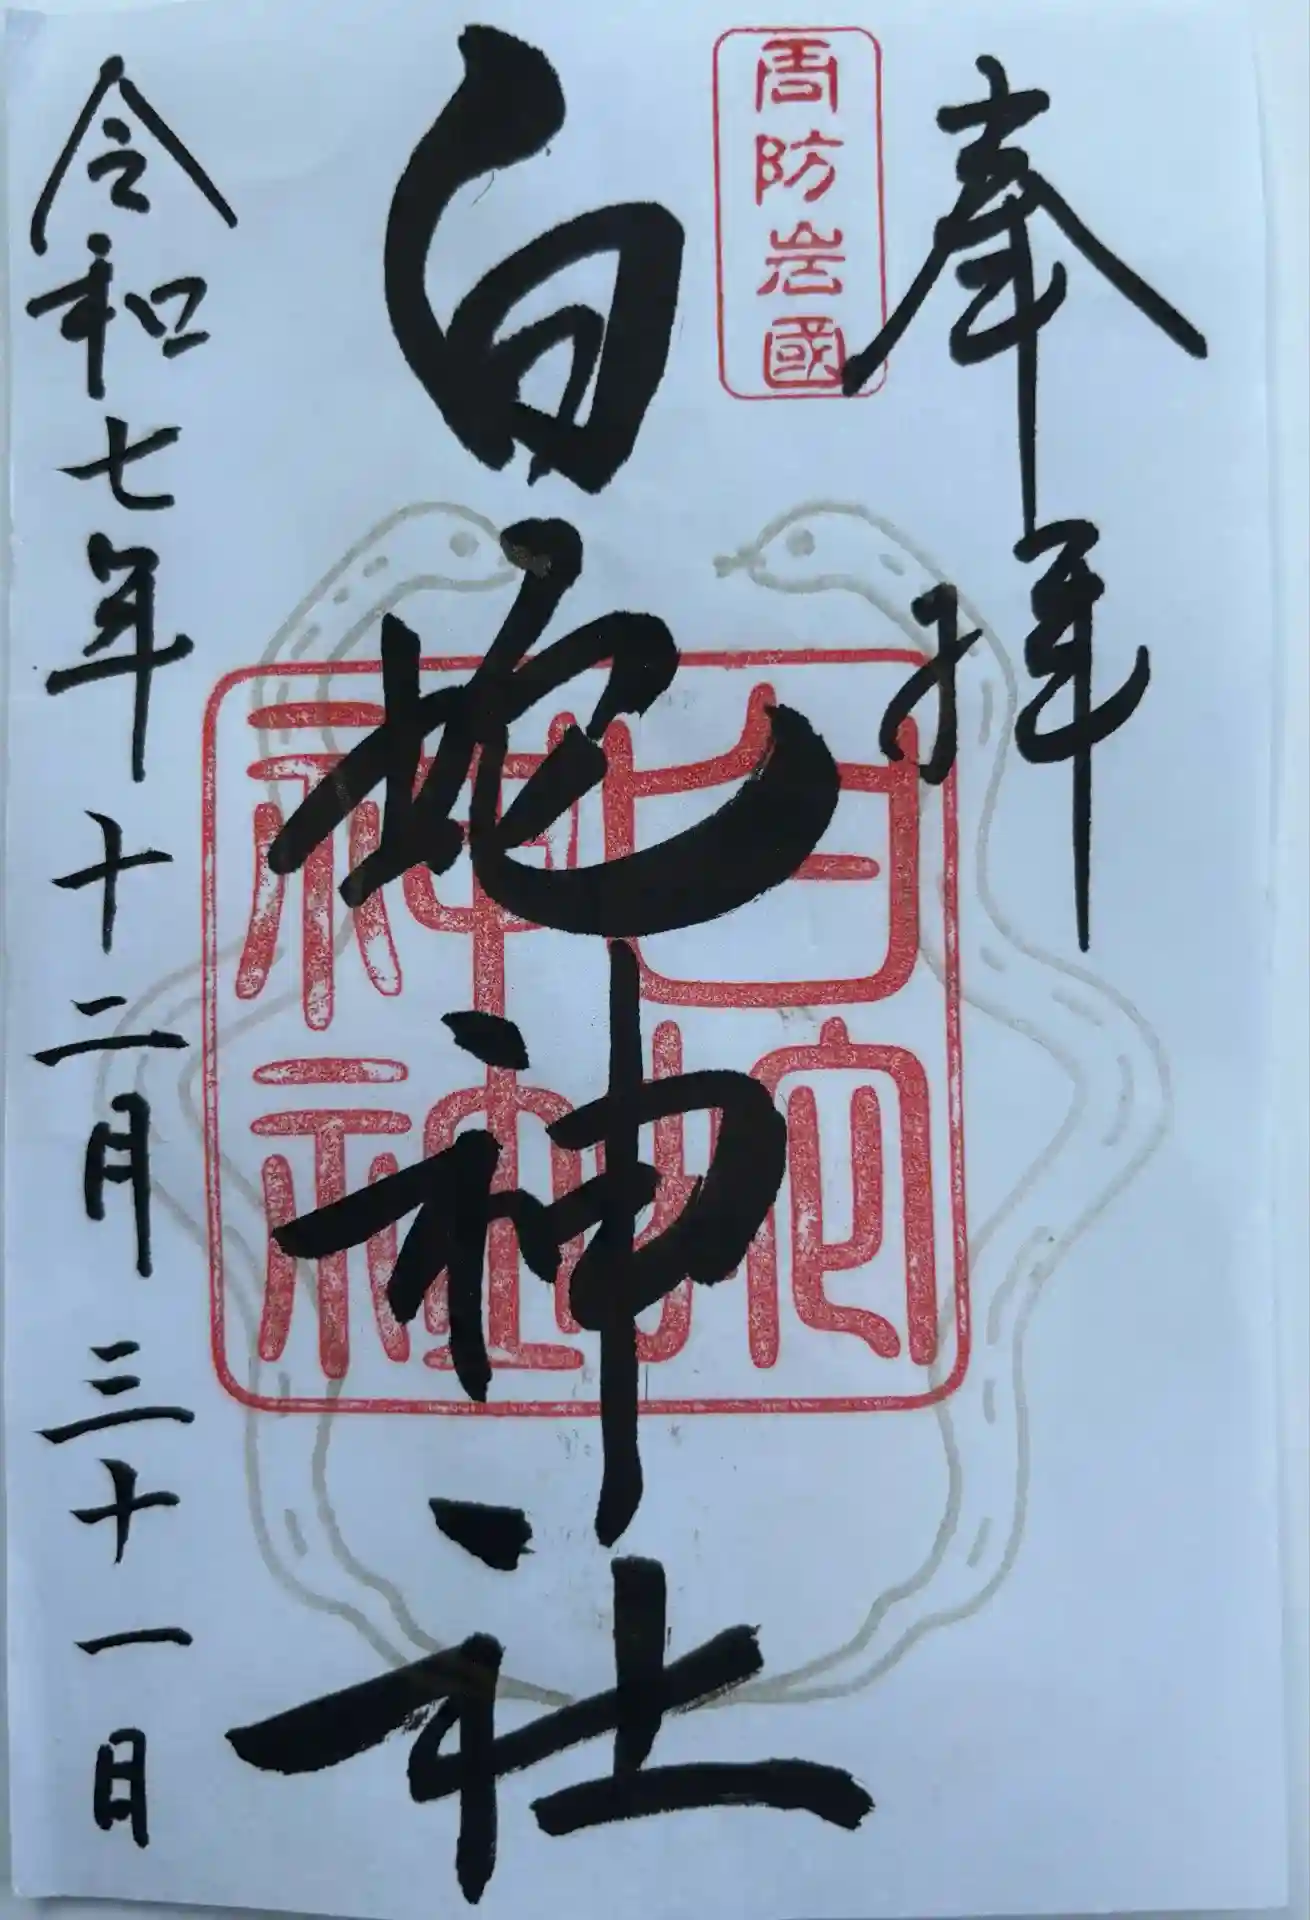 奉拝
周防岩國
白蛇神社
白蛇
神社
令和七年十二月三十一日